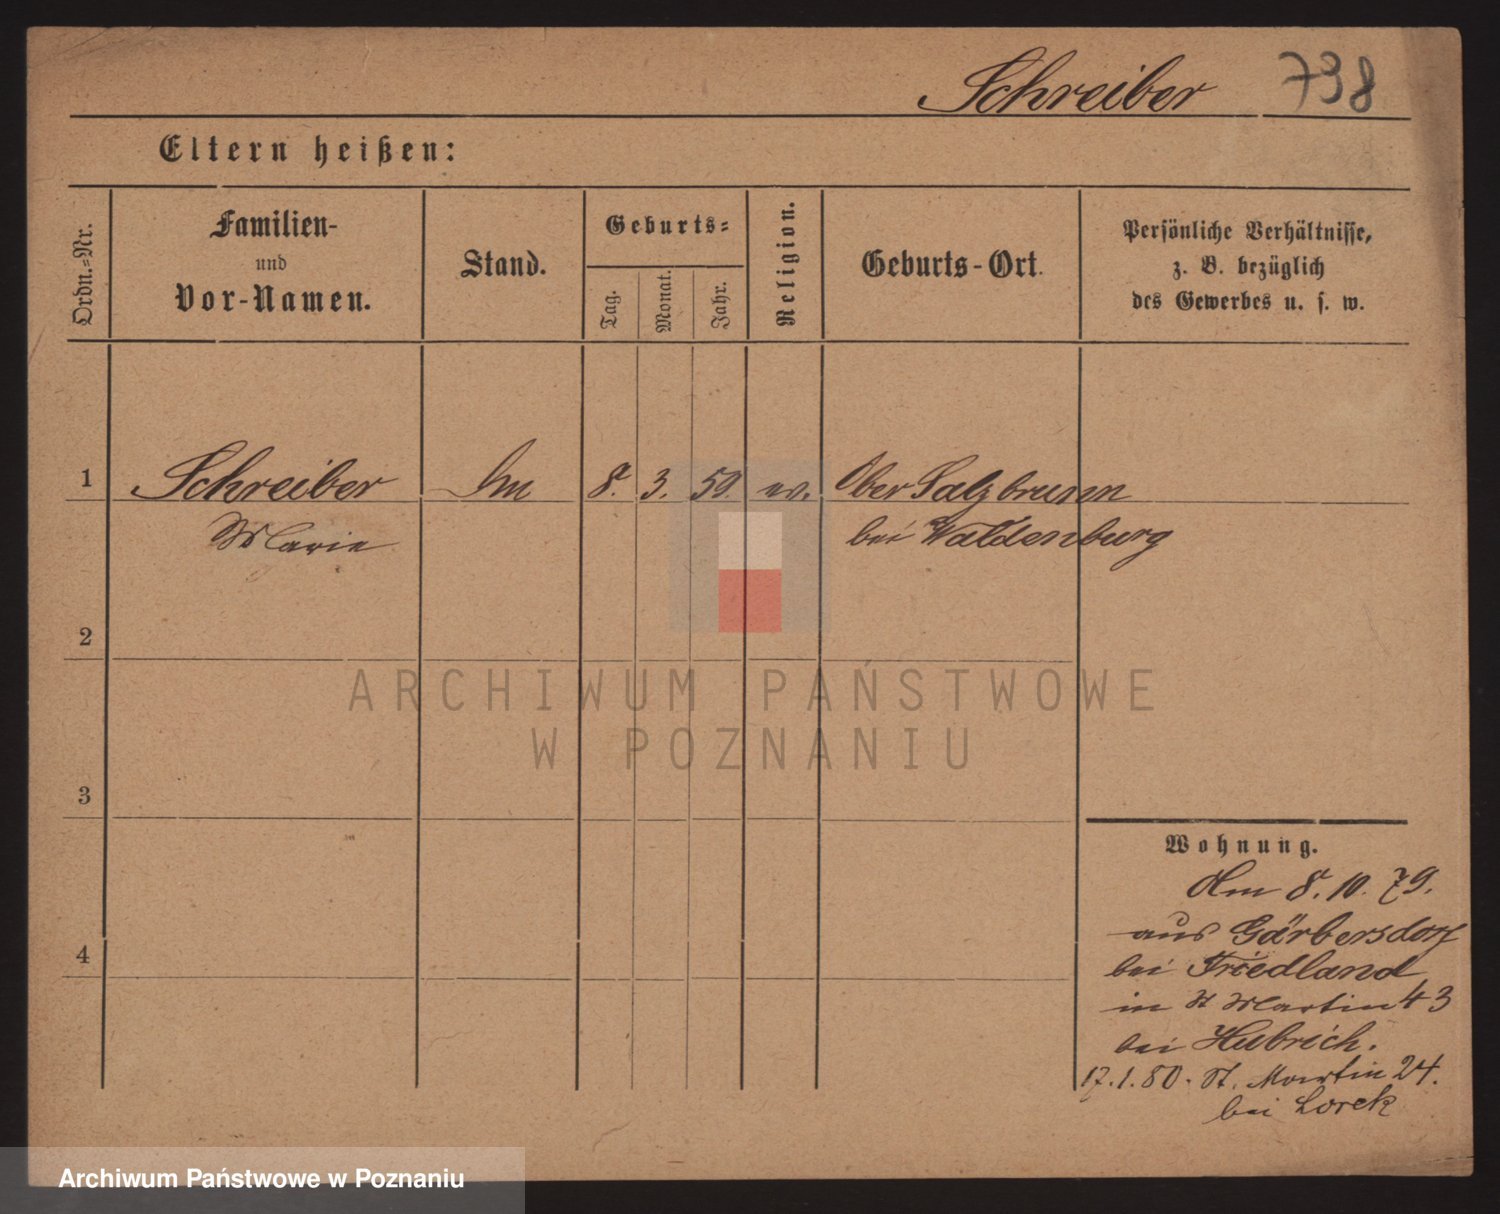 Schreiber 738
Eltern heißen:
Ordn.=Nr.
Familien-
und
Vor-Namen.
Stand.
Geburts=
Tag.
Monat.
Jahr.
Religion.
Geburts-Ort.
Persönliche Verhältnisse,
z. B. bezüglich
des Gewerbes u. s. w.
1 Schreiber 8. 3. 59. ev. Ober Salzbrunn
Marie bei Waldenburg
2
ARCHIWUM PAŃSTWOWE
W POZNANIU
3
Wohnung.
Am 8. 10. 79.
aus Görbersdorf
4
bei Friedland
in St Martin 43
bei Hubrich.
17. 1. 80. St. Martin 24.
bei Lorek
Archiwum Państwowe w Poznaniu